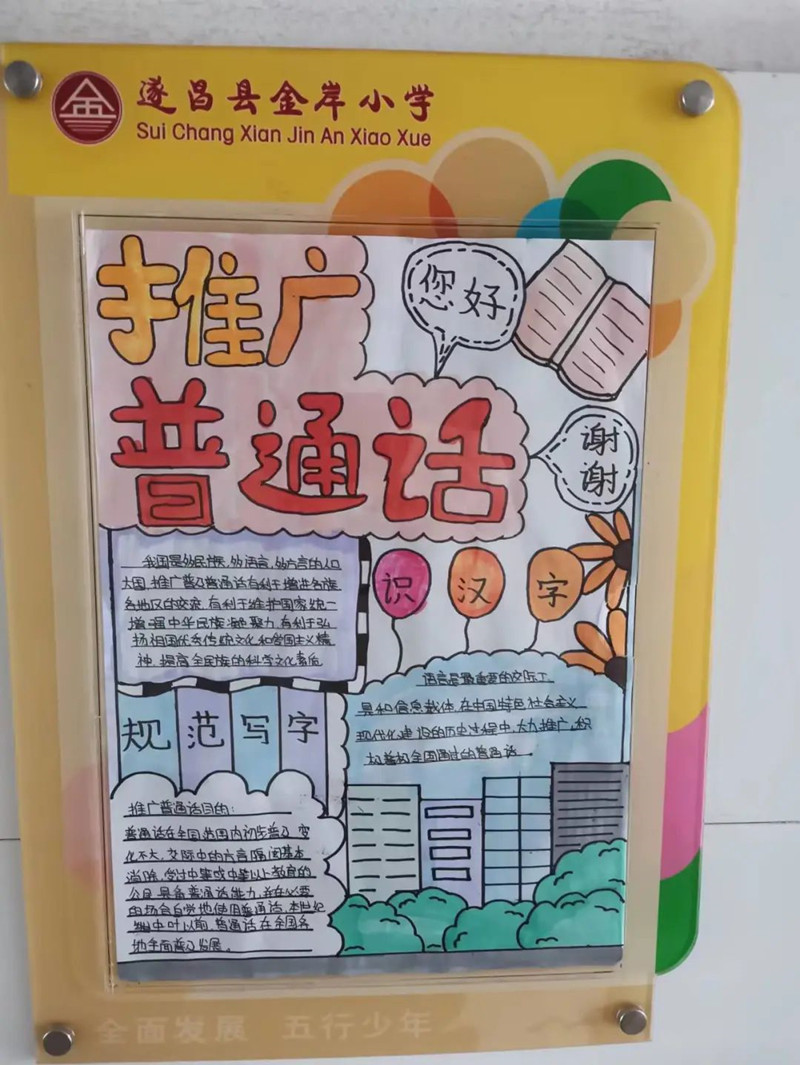 遂昌县金岸小学
Sui Chang Xian Jin An Xiao Xue
金
推广
普通话
您好
谢谢
我国是多民族、多语言、多方言的人口
大国,推广普及普通话有利于增进各族
各地区的交流,有利于维护国家统一
增强中华民族凝聚力,有利于弘
扬祖国优秀传统文化和爱国主义精
神,提高全民族的科学文化素后
识汉字
语言是最重要的交际工
具和信息载体,在中国特色社会主义
现代化建设的历史过程中,大力推广,积
极普及全国通过的普通话
规范写字
推广普通话目的:
普通话在全国范围内初步普及,变
化不大,交际中的方言隔阂基本
消除,受过中等或中等以上教育的
公民具备普通话能力,并在必要
的场合自觉地使用普通话,本世纪
中叶以前,普通话在全国各
地全面普及发展。
全面发展 五行少年